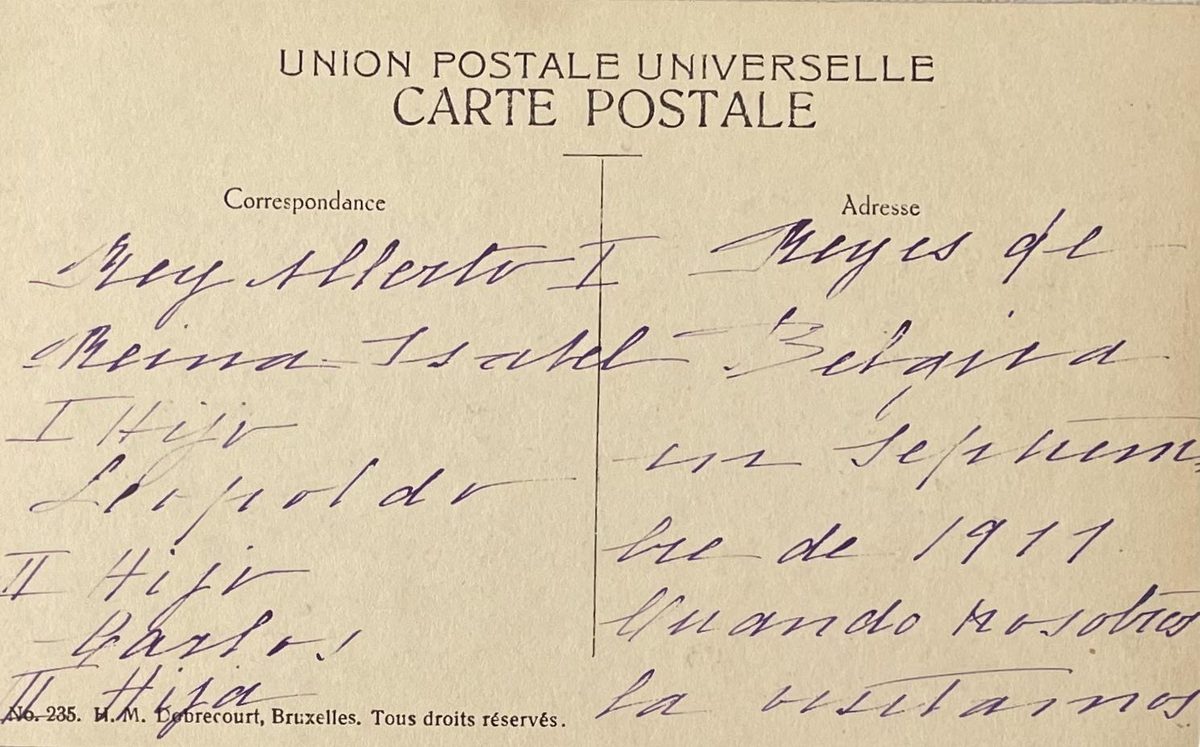 UNION POSTALE UNIVERSELLE
CARTE POSTALE
Correspondance
Rey Alberto I
Reina Isabel
I Hijo
Leopoldo
II Hijo
Carlos
II Hija
No. 235. H. M. Dobrecourt, Bruxelles. Tous droits réservés.
Adresse
Reyes de
Belgica
en Septiem
bre de 1911
Cuando nosotros
la visitamos